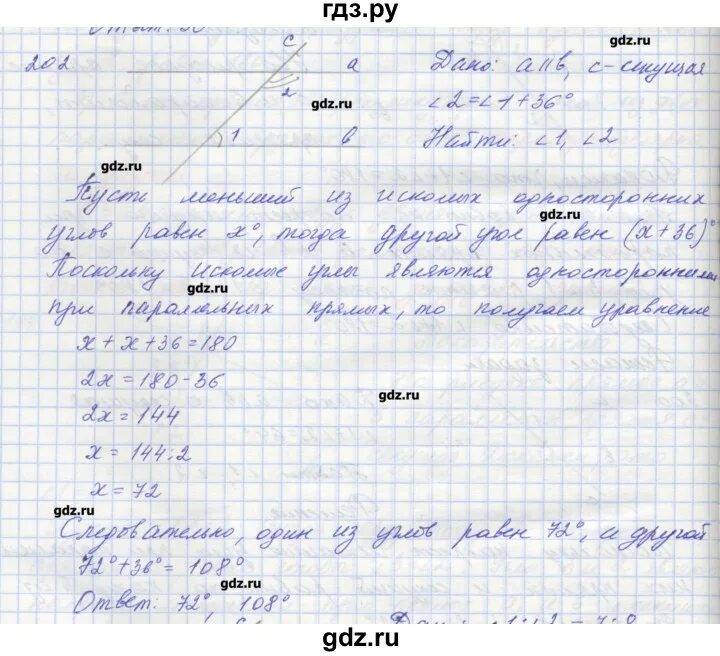 гдз.ру
202
c
a
2
1
b
Дано: a||b, c-секущая
∠2=∠1+36°
Найти: ∠1, ∠2
gdz.ru
gdz.ru
gdz.ru
gdz.ru
Пусть меньший из искомых односторонних
углов равен x°, тогда другой угол равен (x+36)°
gdz.ru
Поскольку искомые углы являются односторонними
gdz.ru
при параллельных прямых, то получаем уравнение
x+x+36=180
2x=180-36
2x=144
gdz.ru
x=144:2
x=72
gdz.ru
Следовательно, один из углов равен 72°, а другой
72°+36°=108°
gdz.ru
Ответ: 72°, 108°
gdz.ru